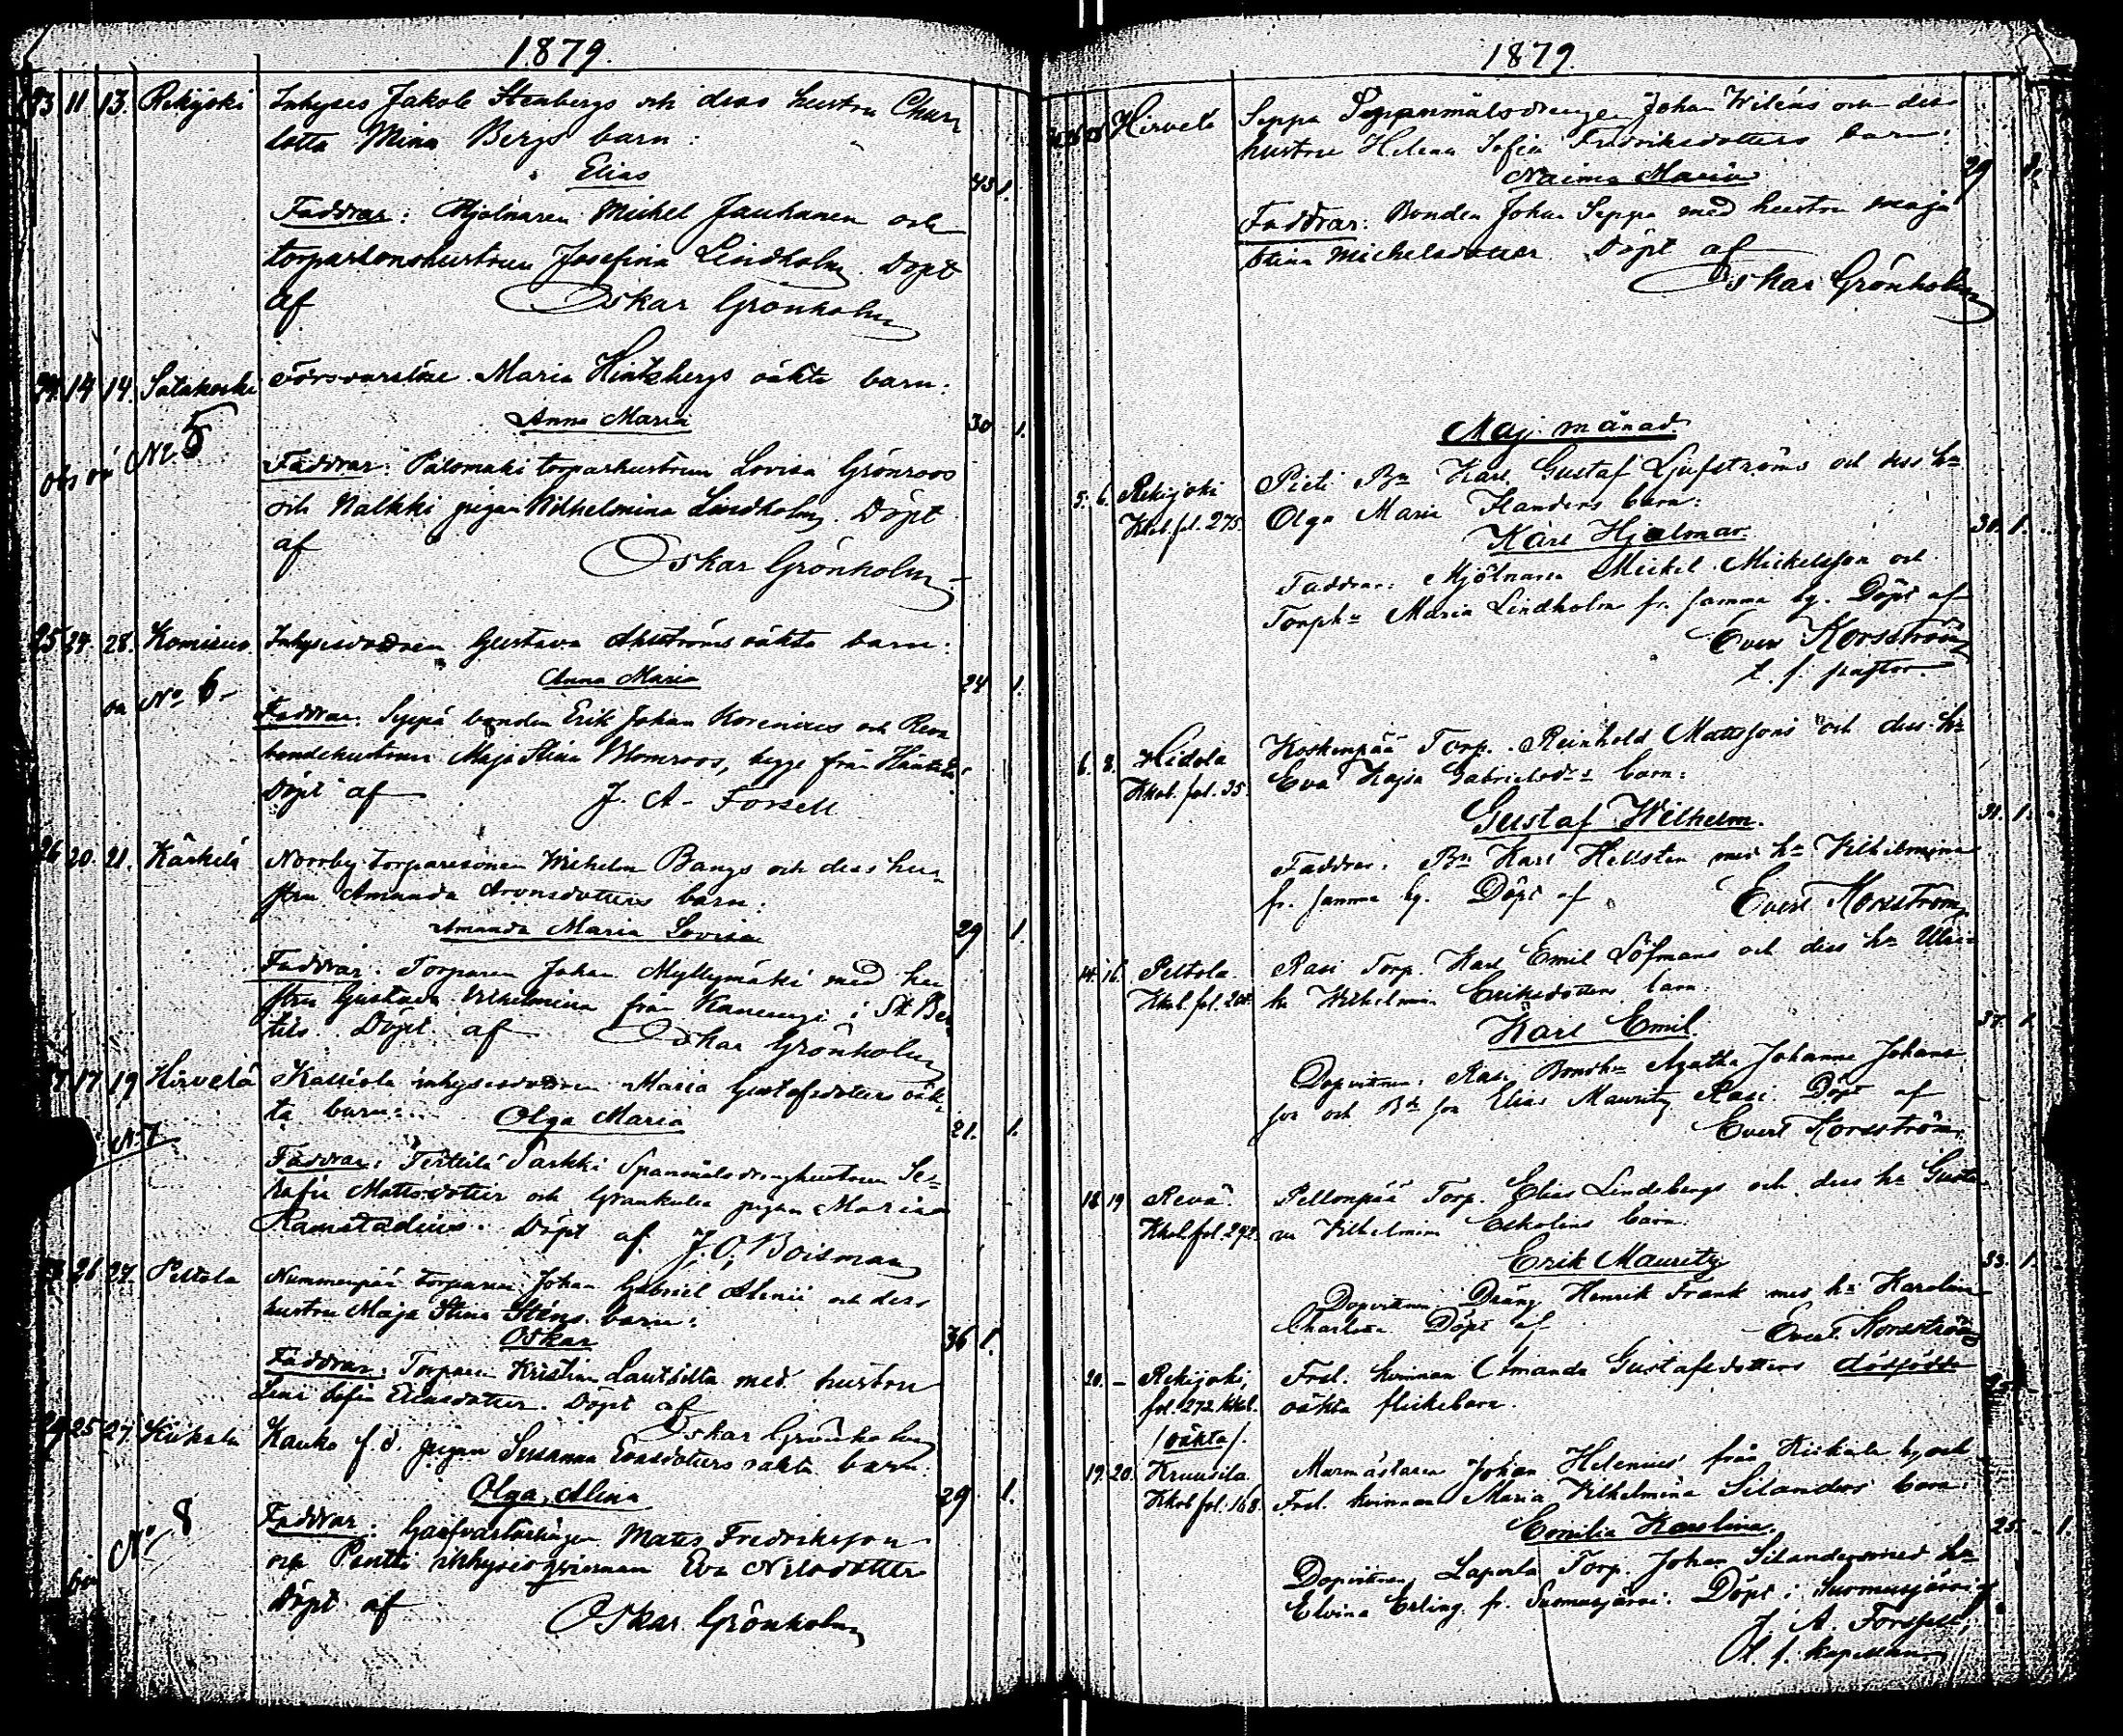 1879.
11 13. Rekijoki Inhyses Jakob Stenbergs och dess hustru Char
lotta Mina Bergs barn:
Elias
43 1.
Faddrar: Mjölnaren Mickel Jauhanen och
torparenshustrun Josefina Lindholm. Döpt
af Oskar Grönholm
24. 14 14. Satakoski Försvarslöse Maria Hintzbergs oäkta barn:
Anna Maria
30 1.
No 5
Faddrar: torparhustrun Lovisa Grönroos
och Nalkki pigan Wilhelmina Lindholm. Döpt
af Oskar Grönholm
25 24. 28. Komisuo Gustava Ahlströms oäkta barn:
Anna Maria
24 1.
oä No 6
Faddrar: Seppä bonden Erik Johan Korenius och
bondehustrun Maja Stina Blomroos, begge från
Döpt af J. A. Forsell
26 20. 21. Kärkelä Norrby torparesonen Wilhelm Bangs och dess hu
stru Amanda Aronsdotters barn:
Amanda Maria Lovisa
29 1.
Faddrar: Torparen Johan Myllymäki med hu
stru Gustava Vilhelmina från i St. Ber
tils. Döpt af Oskar Grönholm
17 19 Hirvelä inhysesdottren Maria Gustafsdotters oäk
ta barn: Olga Maria
21. 1.
No 7
Faddrar: Terttilä Parkki Spanmålsdränghustrun Se
rafia Mattsdotter och pigan Maria
Ramstadius. Döpt af J. O. Boisman
26 27. Peltola Nummenpää torparen Johan Gabriel Alenii och dess
hustru Maja Stina Stens barn:
Oskar
36 1.
Faddrar: Torparen Kristian Lautsilta med hustru
Lena Sofia Eliasdotter. Döpt af
Oskar Grönholm
29 25 27. Kiikala Kauko f.d. pigan Susanna Evasdotters oäkta barn:
Olga Alina
29 1.
No 8
Faddrar: Mats Fredriksson
och Pentti inhyseskvinnan Eva Nilsdotter
Döpt af
Oskar Grönholm
1879.
Hirvelä Seppä Spanmålsdrengen Johan Wiléns och dess
hustru Helena Sofia Fredriksdotters barn:
Naima Maria
29
Faddrar: Bonden Johan Seppä med hustru Maja
Stina Michelsdotter Döpt af
Oskar Grönholm
Maj månad
5. 6. Rekijoki Pieti Bn Karl Gustaf Ljufströms och dess hu
Kkol. fol. 275. Olga Maria Flanders barn:
Karl Hjalmar
30. 1.
Faddrar: Mjölnaren Mickel Mickelsson och
Torphu Maria Lindholm fr. samma by. Döpt af
Evert Korsström
t. f. pastor.
6. 8. Hidola Koskenpää Torp. Reinhold Mattssons och dess hu
Kkol. fol. 35. Eva Kajsa Gabrielsdrs barn:
Gustaf Wilhelm.
31. 1.
Faddrar: Bn Karl Hellsten med hu Vilhelmina
fr. samma by. Döpt af Evert Korsström
14. 16. Peltola. Rasi Torp. Karl Emil Löfmans och dess hu Ulri
Kkol. fol. 208. ka Wilhelmina Eriksdotters barn.
Karl Emil.
37. 1.
Dopvittnen: Rasi Bondhu Agatha Johanna Johans
son och Bd. son Elias Mauritz Rasi. Döpt af
Evert Korsström.
18 19 Revä. Pellonpää Torp. Elias Lindebergs och dess hu Gusta
Kkol. fol. 292. va Vilhelmina Eskolins barn.
Erik Mauritz
33. 1.
Dopvittnen Dräng Henrik Frank med hu Karolina
Charlotta Döpt af Evert Korsström
20. – Rekijoki, Frsl. kvinnan Amanda Gustafsdotters dödfödda
fol. 272 Kkol. oäkta flickebarn.
/oäkta/.
19. 20. Kruusila Murmästaren Johan Helenius från Kiikala by och
Kkol. fol. 168. Frsl. kvinnan Maria Vilhelmina Silanders barn:
Emilia Karolina.
25. – 1.
Dopvittnen, Laperla Torp. Johan Silander med hu
Elvina Erling fr. Suomusjärvi. Döpt i Suomusjärvi af
J. A. Forssell,
t. f. kapellan